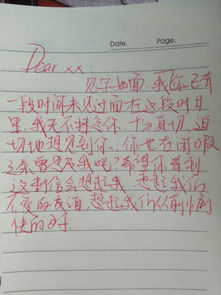 Date. Page.
Dear xx.
见字如面，我你已有
一段时间未见过面在这段时日
里，我无不特念你，十分真切，迫
切地想见到你，你也在闲暇
之余曾思及我吧？希望你看到
这封信会想起我，想起我们
不变的友谊，想起我们从前
快的时